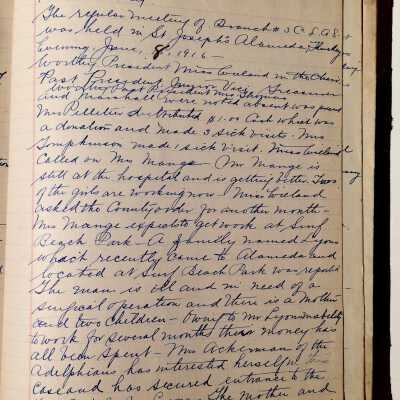 The regular meeting of Branch #3 C.L.A.S.
was held in St Joseph's Alameda, Thursday
Evening, June, 8, 1916 —
Worthy President Miss Cieland in the Chair
Past President Junior Vice Treasurer
Worthy Past President Mrs
and Marshall were noted absent
Mrs Pelletier distributed $1.00 Cash what was
a donation and made 3 sick visits. Mrs
Tompkinson made 1 sick visit. Miss Cieland
Called on Mrs Mange — Mr Mange is
still at the hospital and is getting better. Two
of the girls are working now — Miss Cieland
asked the County order for another month —
Mrs Mange expects to get work at Surf
Beach Park — A family named Lyons
who recently came to Alameda and
located at Surf Beach Park was reported
The man is ill and in need of a
surgical operation and there is a Mother
and two Children — Owing to Mr Lyons inability
to work for several months their money has
all been spent — Mrs Ackerman of the
Adelphians has interested herself in the
case and has secured entrance to the
The mother and